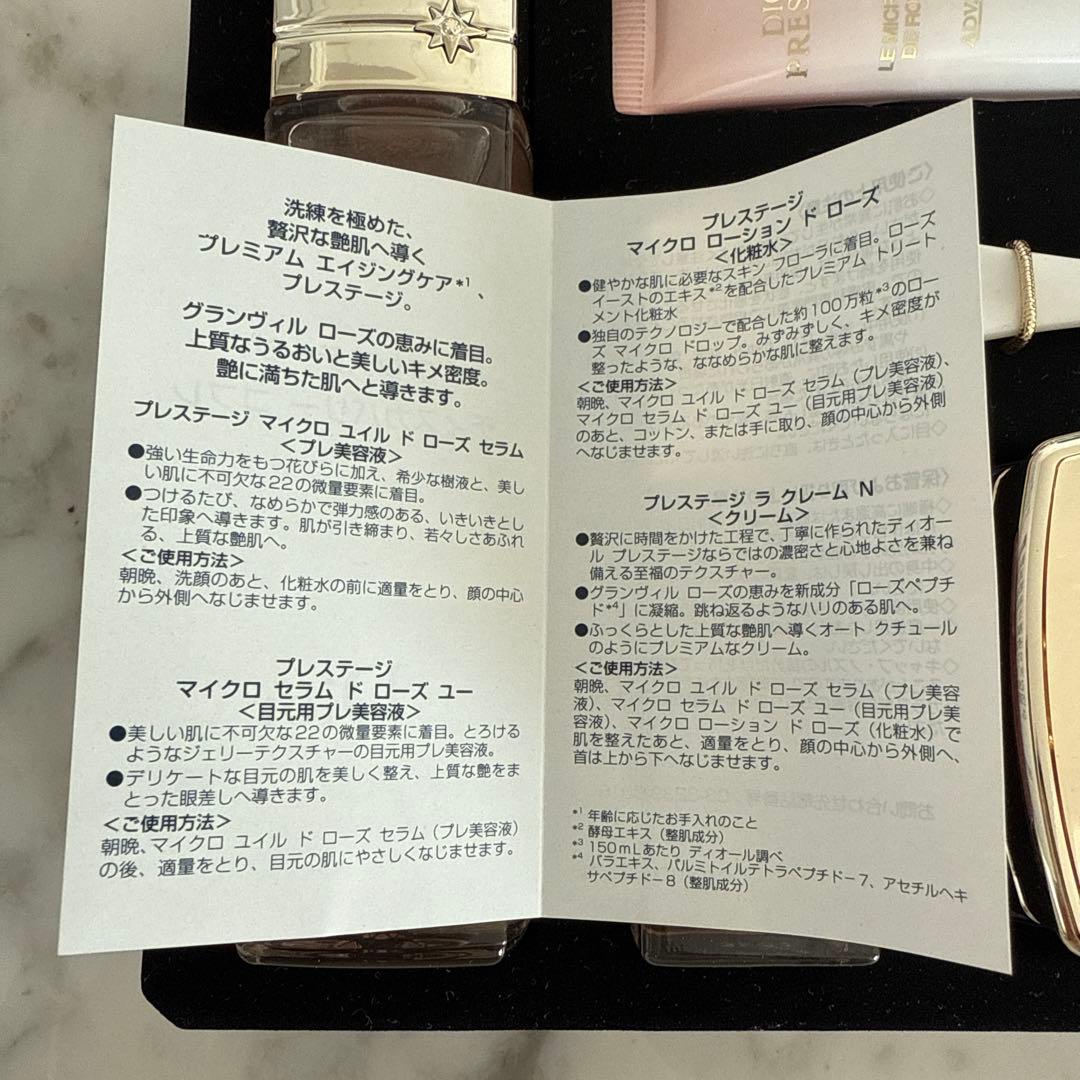 洗練を極めた、
贅沢な艶肌へ導く
プレミアム エイジングケア*1、
プレステージ。
グランヴィル ローズの恵みに着目。
上質なうるおいと美しいキメ密度。
艶に満ちた肌へと導きます。
プレステージ マイクロ ユイル ド ローズ セラム
<プレ美容液>
●強い生命力をもつ花びらに加え、希少な樹液と、美し
い肌に不可欠な22の微量要素に着目。
●つけるたび、なめらかで弾力感のある、いきいきとし
た印象へ導きます。肌が引き締まり、若々しさあふれ
る、上質な艶肌へ。
<ご使用方法>
朝晩、洗顔のあと、化粧水の前に適量をとり、顔の中心
から外側へなじませます。
プレステージ
マイクロ セラム ド ローズ ユー
<目元用プレ美容液>
●美しい肌に不可欠な22の微量要素に着目。とろける
ようなジェリーテクスチャーの目元用プレ美容液。
●デリケートな目元の肌を美しく整え、上質な艶をま
とった眼差しへ導きます。
<ご使用方法>
朝晩、マイクロ ユイル ド ローズ セラム（プレ美容液）
の後、適量をとり、目元の肌にやさしくなじませます。
プレステージ
マイクロ ローション ド ローズ
<化粧水>
●健やかな肌に必要なスキン フローラに着目。ローズ
イーストのエキス*2を配合したプレミアム トリート
メント化粧水
●独自のテクノロジーで配合した約100万粒*3のロー
ズ マイクロ ドロップ。みずみずしく、キメ密度が
整ったような、ななめらかな肌に整えます。
<ご使用方法>
朝晩、マイクロ ユイル ド ローズ セラム（プレ美容液）、
マイクロ セラム ド ローズ ユー（目元用プレ美容液）
のあと、コットン、または手に取り、顔の中心から外側
へなじませます。
プレステージ ラ クレーム N
<クリーム>
●贅沢に時間をかけた工程で、丁寧に作られたディオー
ル プレステージならではの濃密さと心地よさを兼ね
備える至福のテクスチャー。
●グランヴィル ローズの恵みを新成分「ローズペプチ
ド*4」に凝縮。跳ね返るようなハリのある肌へ。
●ふっくらとした上質な艶肌へ導くオート クチュール
のようにプレミアムなクリーム。
<ご使用方法>
朝晩、マイクロ ユイル ド ローズ セラム（プレ美容
液）、マイクロ セラム ド ローズ ユー（目元用プレ美
容液）、マイクロ ローション ド ローズ（化粧水）で
肌を整えたあと、適量をとり、顔の中心から外側へ、
首は上から下へなじませます。
*1 年齢に応じたお手入れのこと
*2 酵母エキス（整肌成分）
*3 150mLあたり ディオール調べ
*4 バラエキス、パルミトイルテトラペプチドー7、アセチルヘキ
サペプチドー8（整肌成分）
PRES
LE MICR
DE RO
ADV